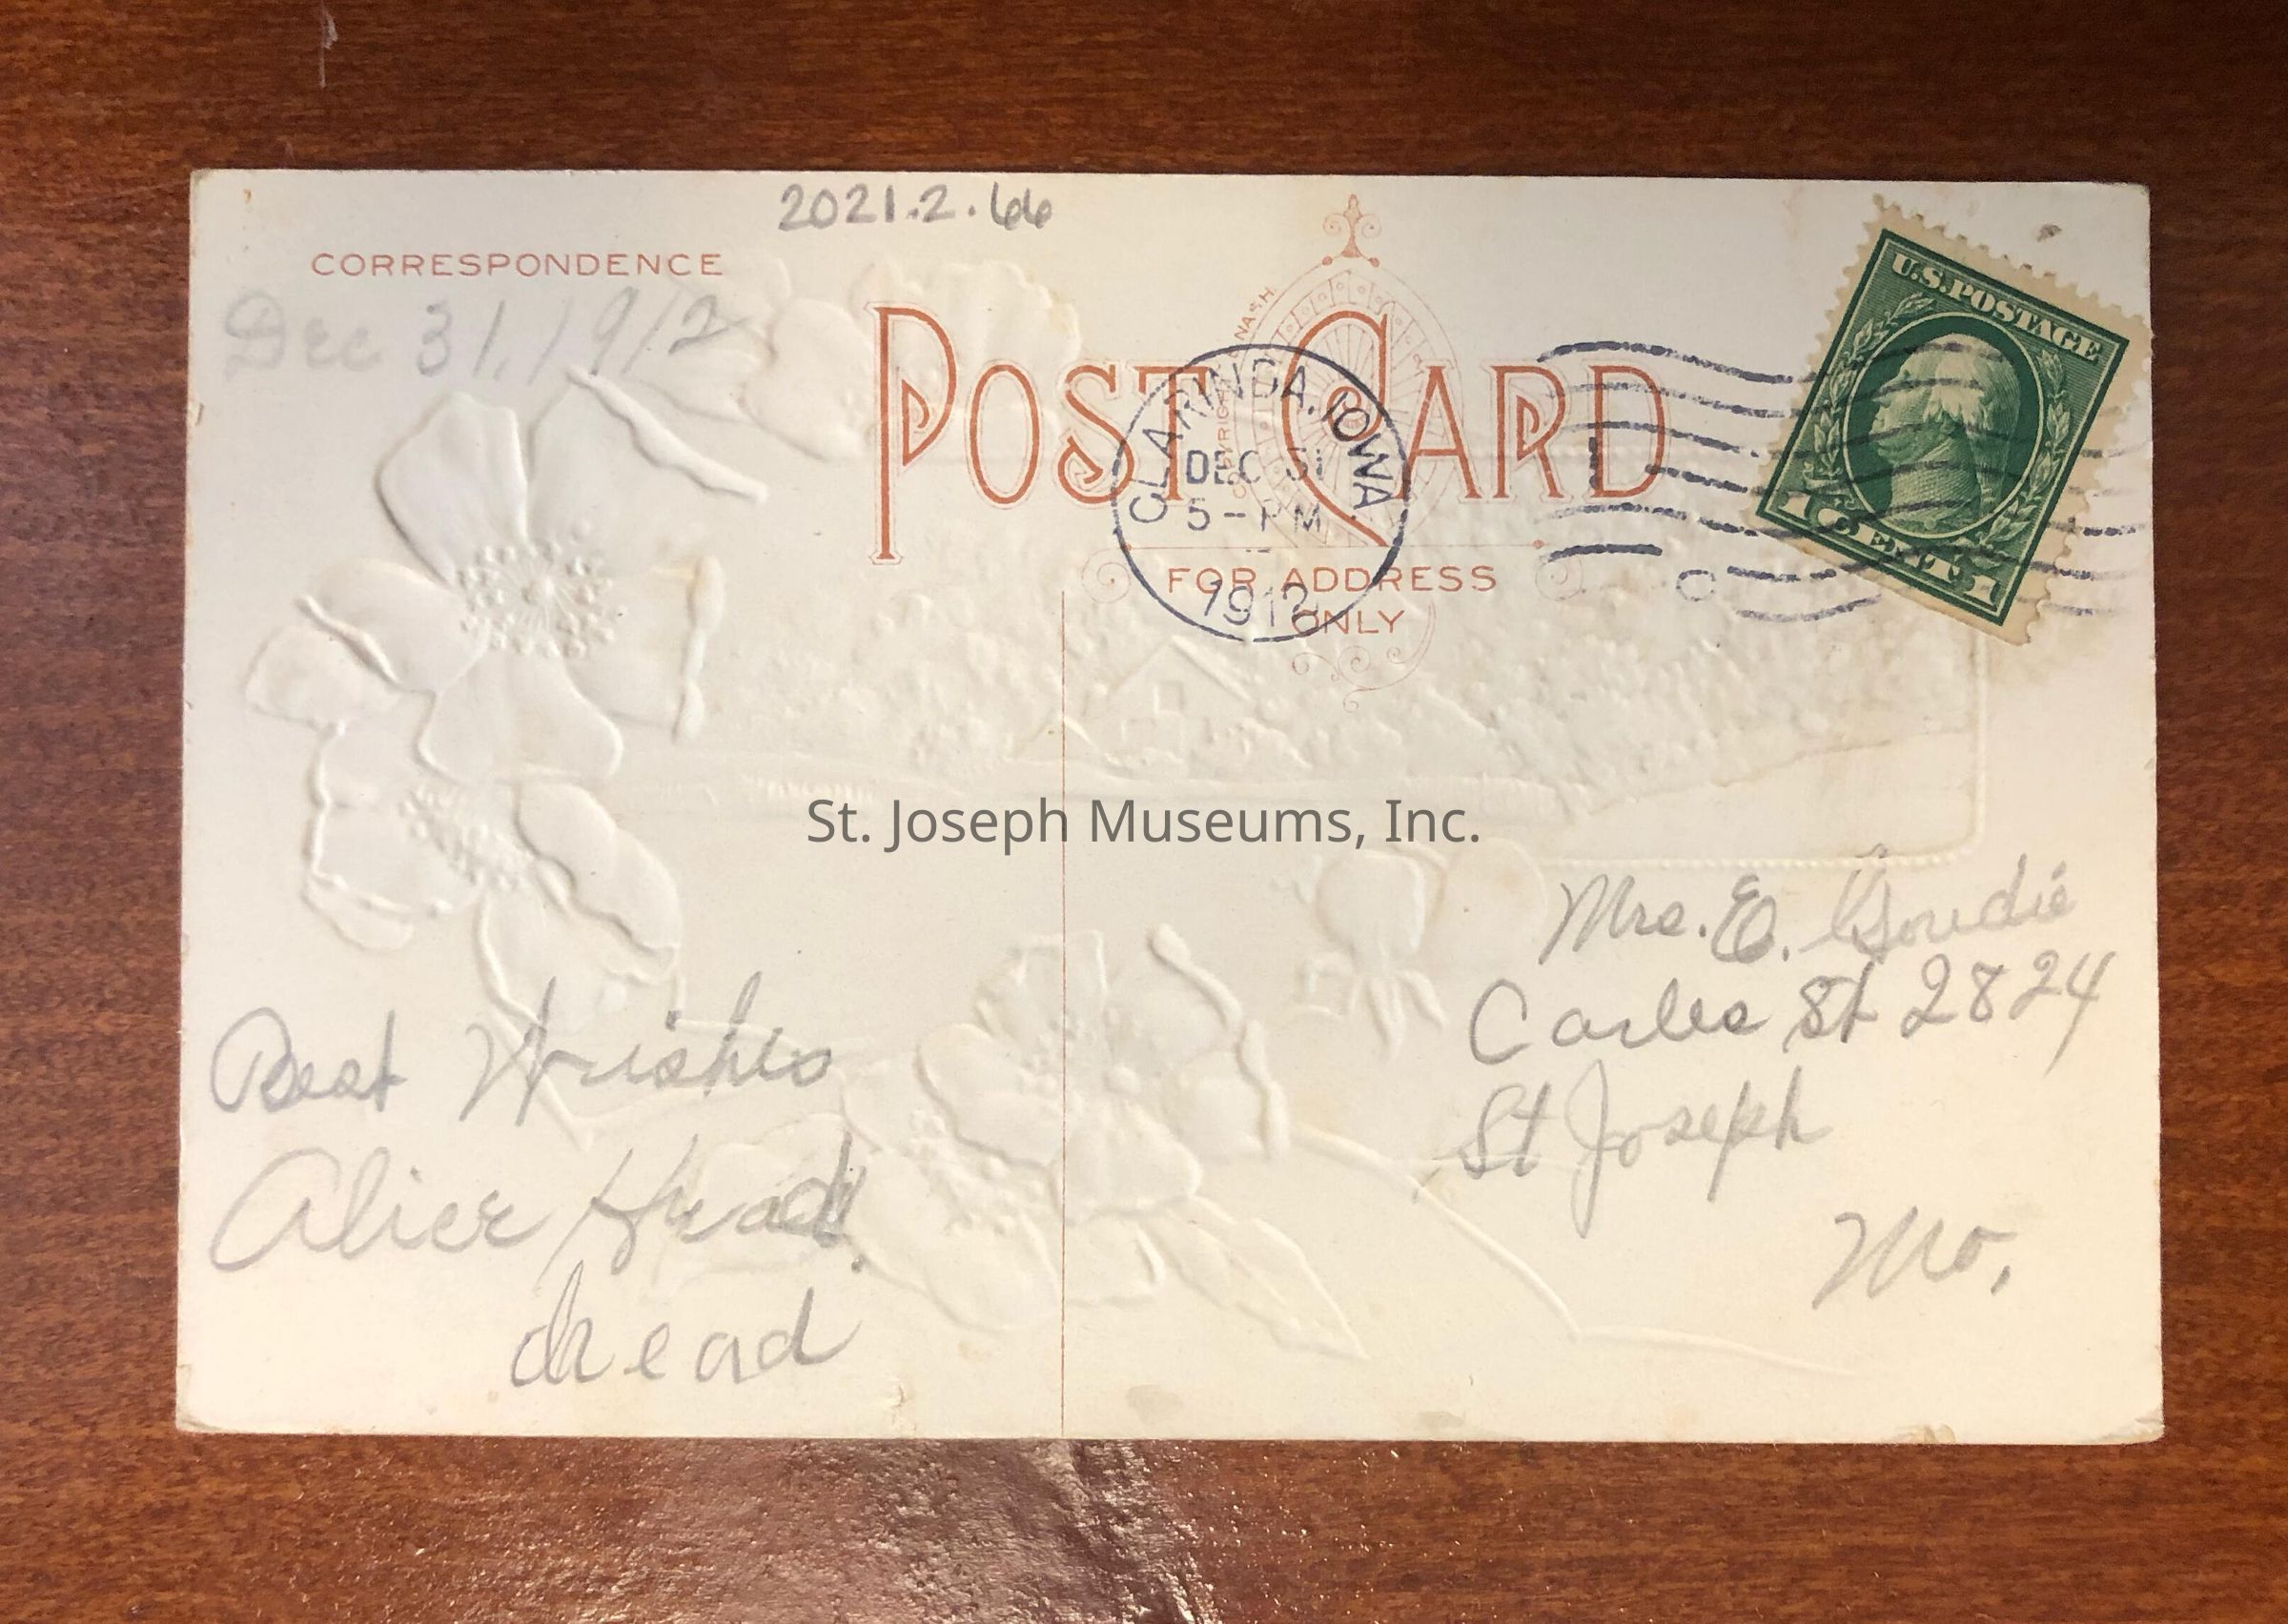 2021.2.66
CORRESPONDENCE
Dec 31, 1912
POST CARD
NASH.
CLARINDA, IOWA.
DEC 31
5-PM
1912
FOR ADDRESS
ONLY
U.S. POSTAGE
1 CENT 1
St. Joseph Museums, Inc.
Best Wishes
Alice Head
Head
Mrs. E. Goudie
St 2824
St Joseph
Mo.